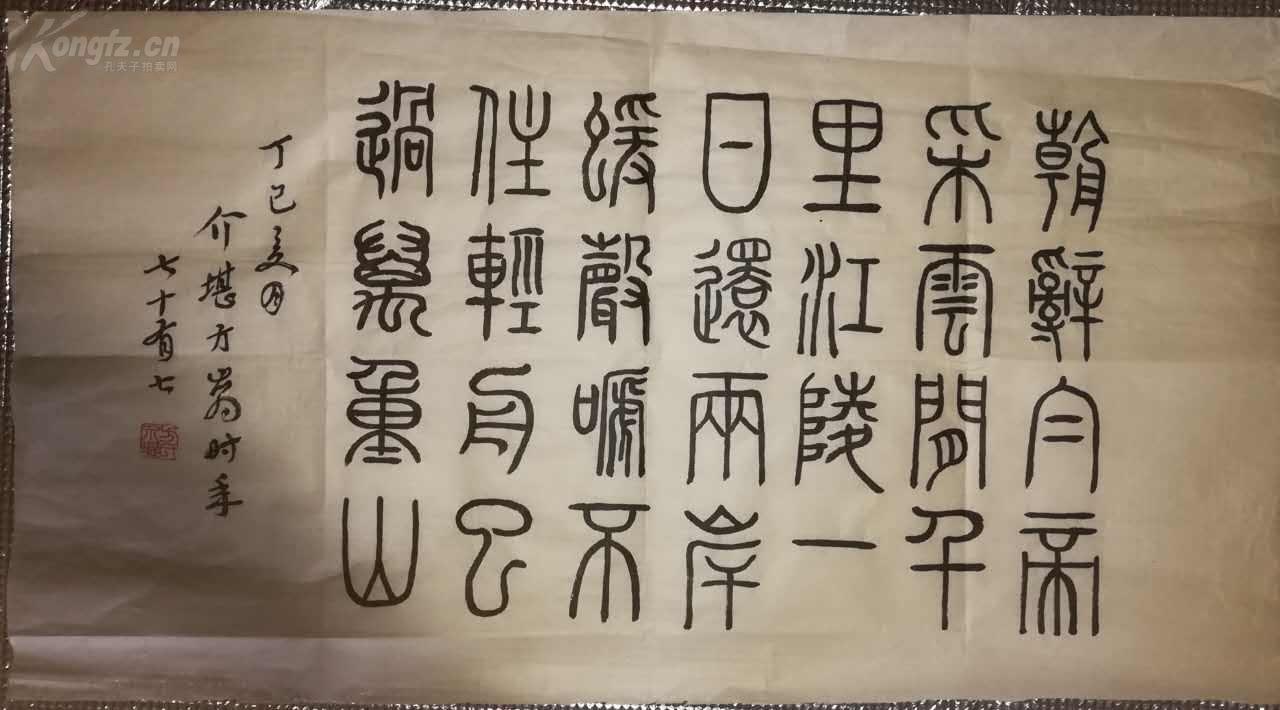 Kongfz.cn
孔夫子拍卖网
朝辭白帝
采雲間千
里江陵一
日還兩岸
蝯聲嗁不
住輕舟已
過萬重山
丁巳夏月
介堪方嵒时年
七十有七